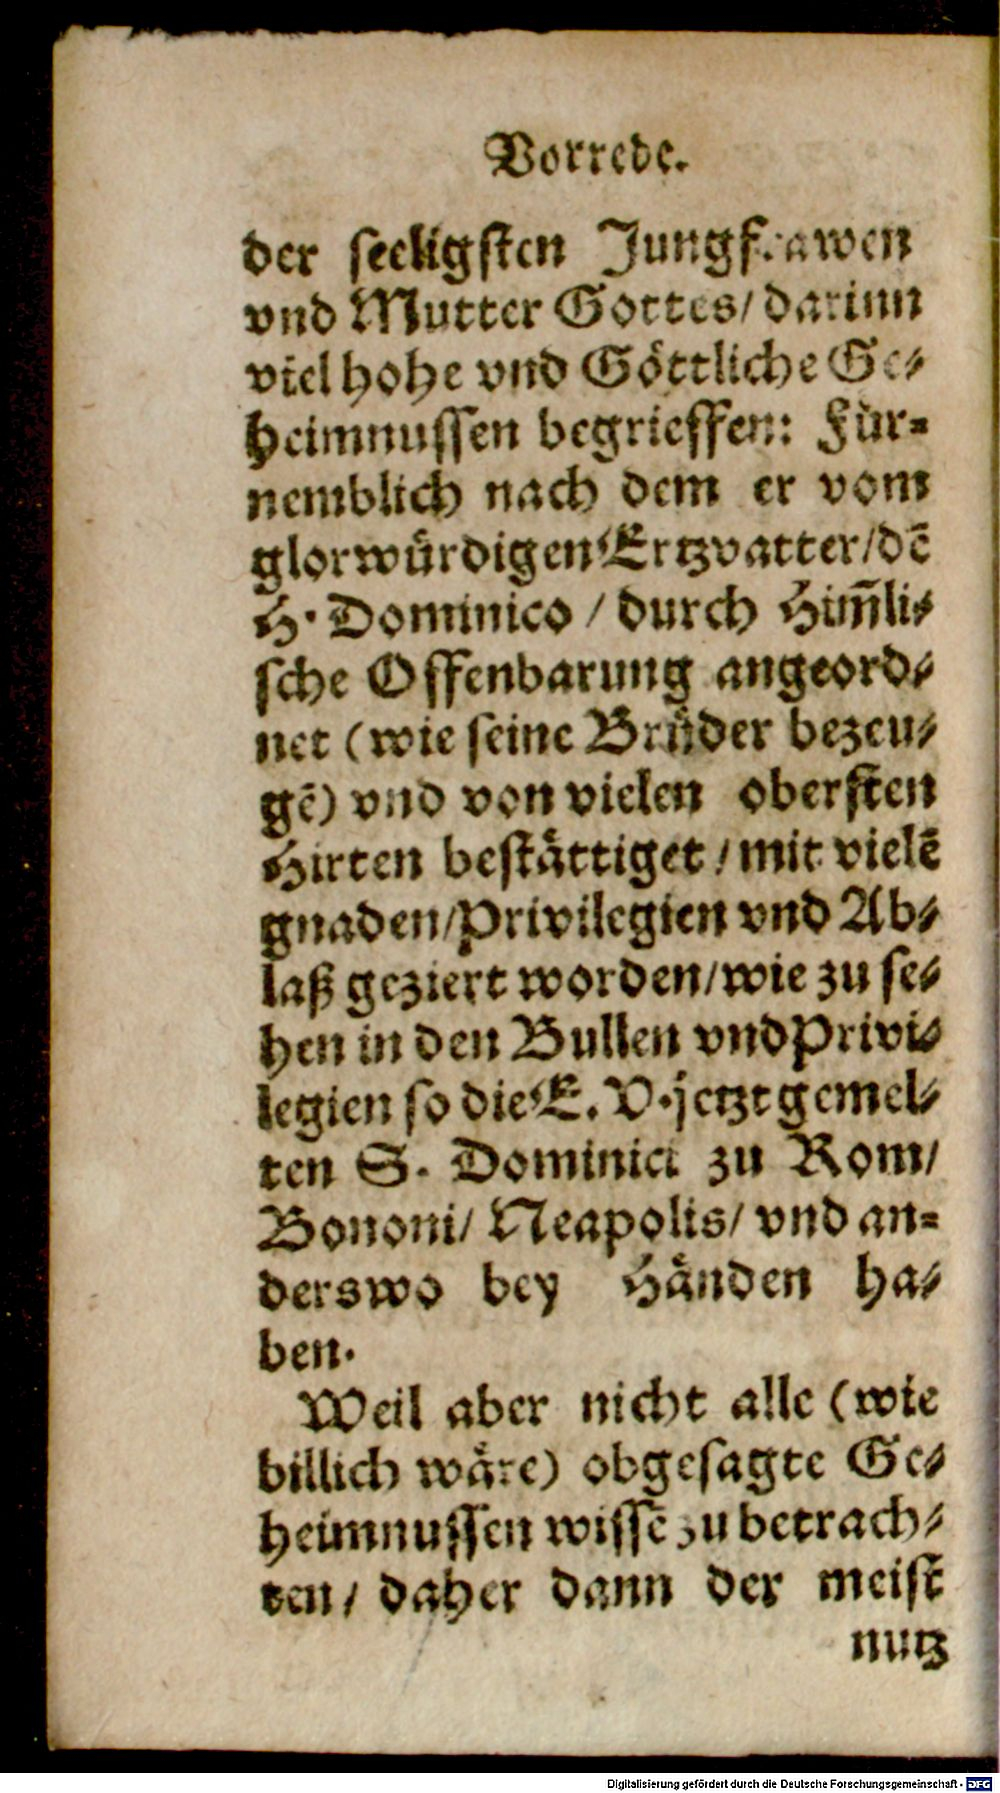 Vorrede.
der seeligsten Jungfrawen
vnd Mutter Gottes/ darinn
viel hohe vnd Göttliche Ge-
heimnussen begrieffen: Für-
nemblich nach dem er vom
glorwürdigen Ertzvatter/ dẽ
H. Dominico / durch Him̃li-
sche Offenbarung angeord-
net (wie seine Brüder bezeu-
gẽ) vnd von vielen obersten
Hirten bestättiget / mit vielẽ
gnaden/ Privilegien vnd Ab-
laß geziert worden/ wie zu se-
hen in den Bullen vnd Privi-
legien so die E. V. jetzt gemel-
ten S. Dominici zu Rom/
Bononi/ Neapolis/ vnd an-
derswo bey Händen ha-
ben.
Weil aber nicht alle (wie
billich wäre) obgesagte Ge-
heimnussen wissẽ zu betrach-
ten / daher dann der meist
nutz
Digitalisierung gefördert durch die Deutsche Forschungsgemeinschaft - DFG